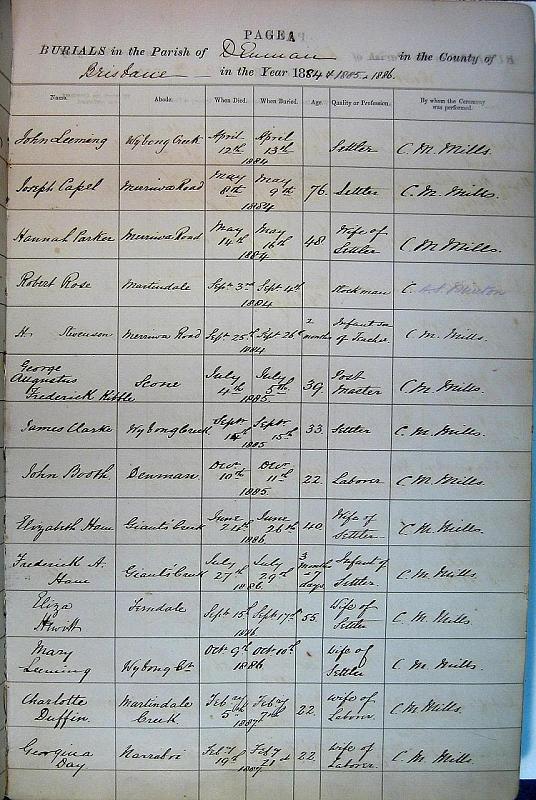 PAGE 1
BURIALS in the Parish of Denman in the County of
Brisbane in the Year 1884 & 1885, 1886.
Name. Abode. When Died. When Buried. Age. Quality or Profession. By whom the Ceremony was performed.
John Leeming Wybong Creek April 12th April 13th 1884 Settler C. M. Mills.
Joseph Capel Merriwa Road May 8th May 9th 1884 76. Settler C. M. Mills.
Hannah Parker Merriwa Road May 14th May 16th 1884 48 Wife of Settler C. M. Mills.
Robert Rose Martindale Sept 3rd Sept 4th 1884 Stockman C.
H. Stevenson Merriwa Road Sept 25th Sept 26th 1884 2 months Infant son of Teacher C. M. Mills.
George Augustus Frederick Scone July 4th July 5th 1885 39. Post Master C. M. Mills.
James Clarke Wybong Creek Sept 14th Sept 15th 1885 33. Settler C. M. Mills.
John Booth Denman Decr 10th Decr 11th 1885 22 Laborer C. M. Mills.
Elizabeth Hawe Giants Creek June June 26th 1886 40 Wife of Settler C. M. Mills.
Frederick A. Hawe Giants Creek July 27th July 29th 1886 3 months 7 days Infant of Settler C. M. Mills.
Eliza Hewitt Ferndale Sept 15th Sept 17th 1886 55. Wife of Settler C. M. Mills.
Mary Leeming Wybong Ck Oct 9th Oct 10th 1886 Wife of Settler C. M. Mills.
Charlotte Duffin. Martindale Creek Feby 5th Feby 1887 22. Wife of Laborer C. M. Mills.
Georgina Day Feby 19th Feby 21st 1887 22. Wife of Laborer C. M. Mills.